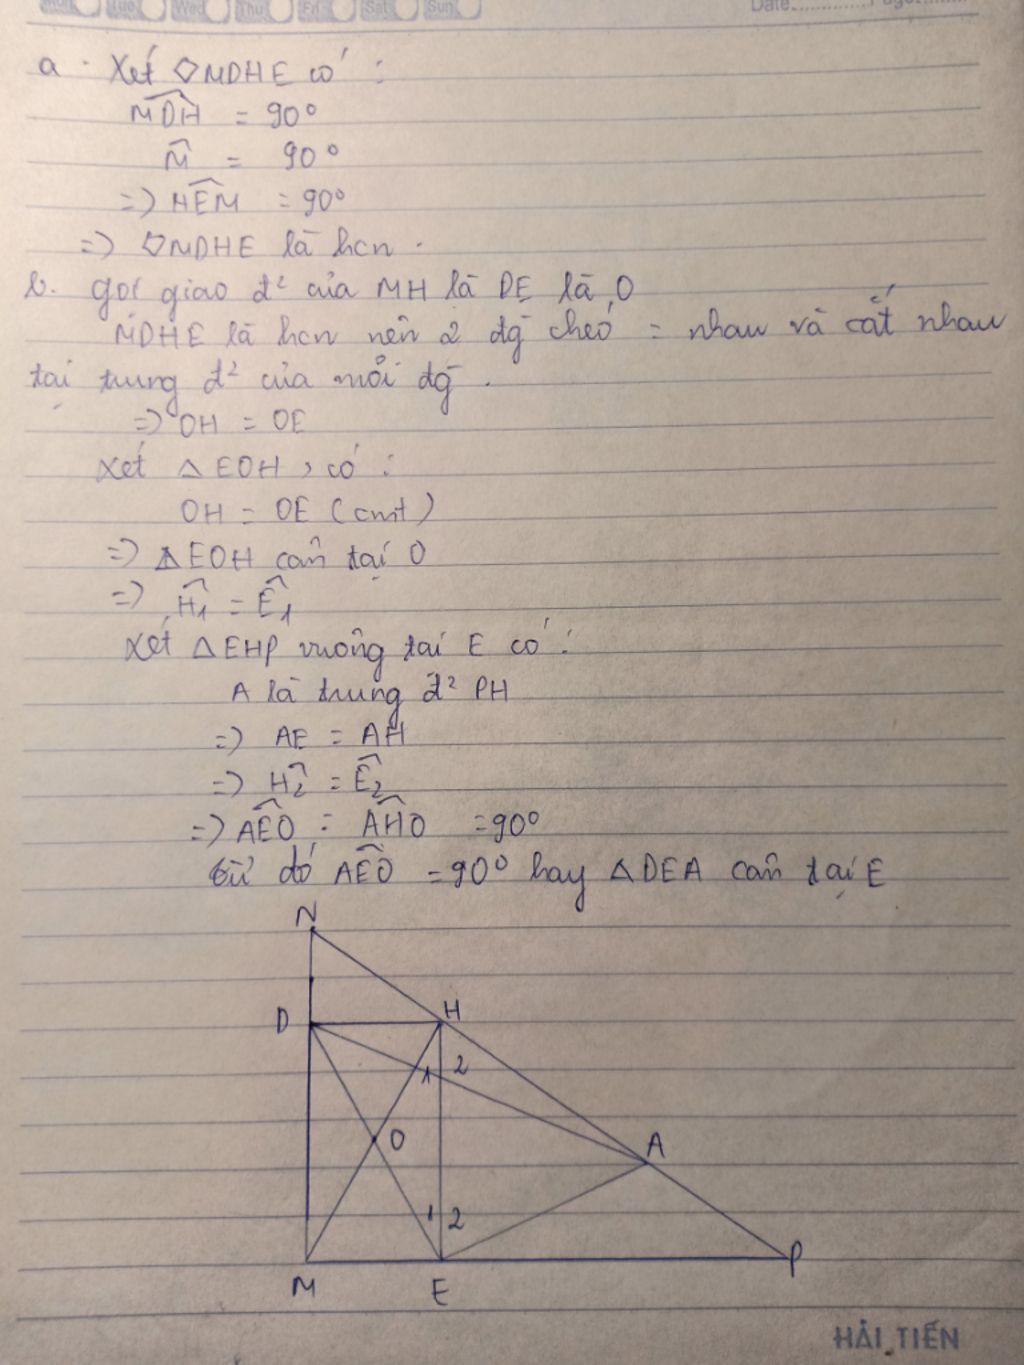 Mon Tue Wed Thu Fri Sat Sun
Date............. Page............
a. Xét ◇MDHE có :
MDH = 90°
M̂ = 90°
=> HEM = 90°
=> ◇MDHE là hcn.
b. gọi giao đ² của MH là DE là O
MDHE là hcn nên 2 đg chéo = nhau và cắt nhau
tại trung đ² của mỗi đg.
=> OH = OE
Xét △EOH, có :
OH = OE (cmt)
=> △EOH cân tại O
=> Ĥ1 = Ê1
Xét △EHP vuông tại E có :
A là trung đ² PH
=> AE = AH
=> Ĥ2 = Ê2
=> AEO = AHO = 90°
từ đó AEO = 90° hay △DEA cân tại E
N
D H
1 2
O A
1 2
M E P
HẢI TIẾN